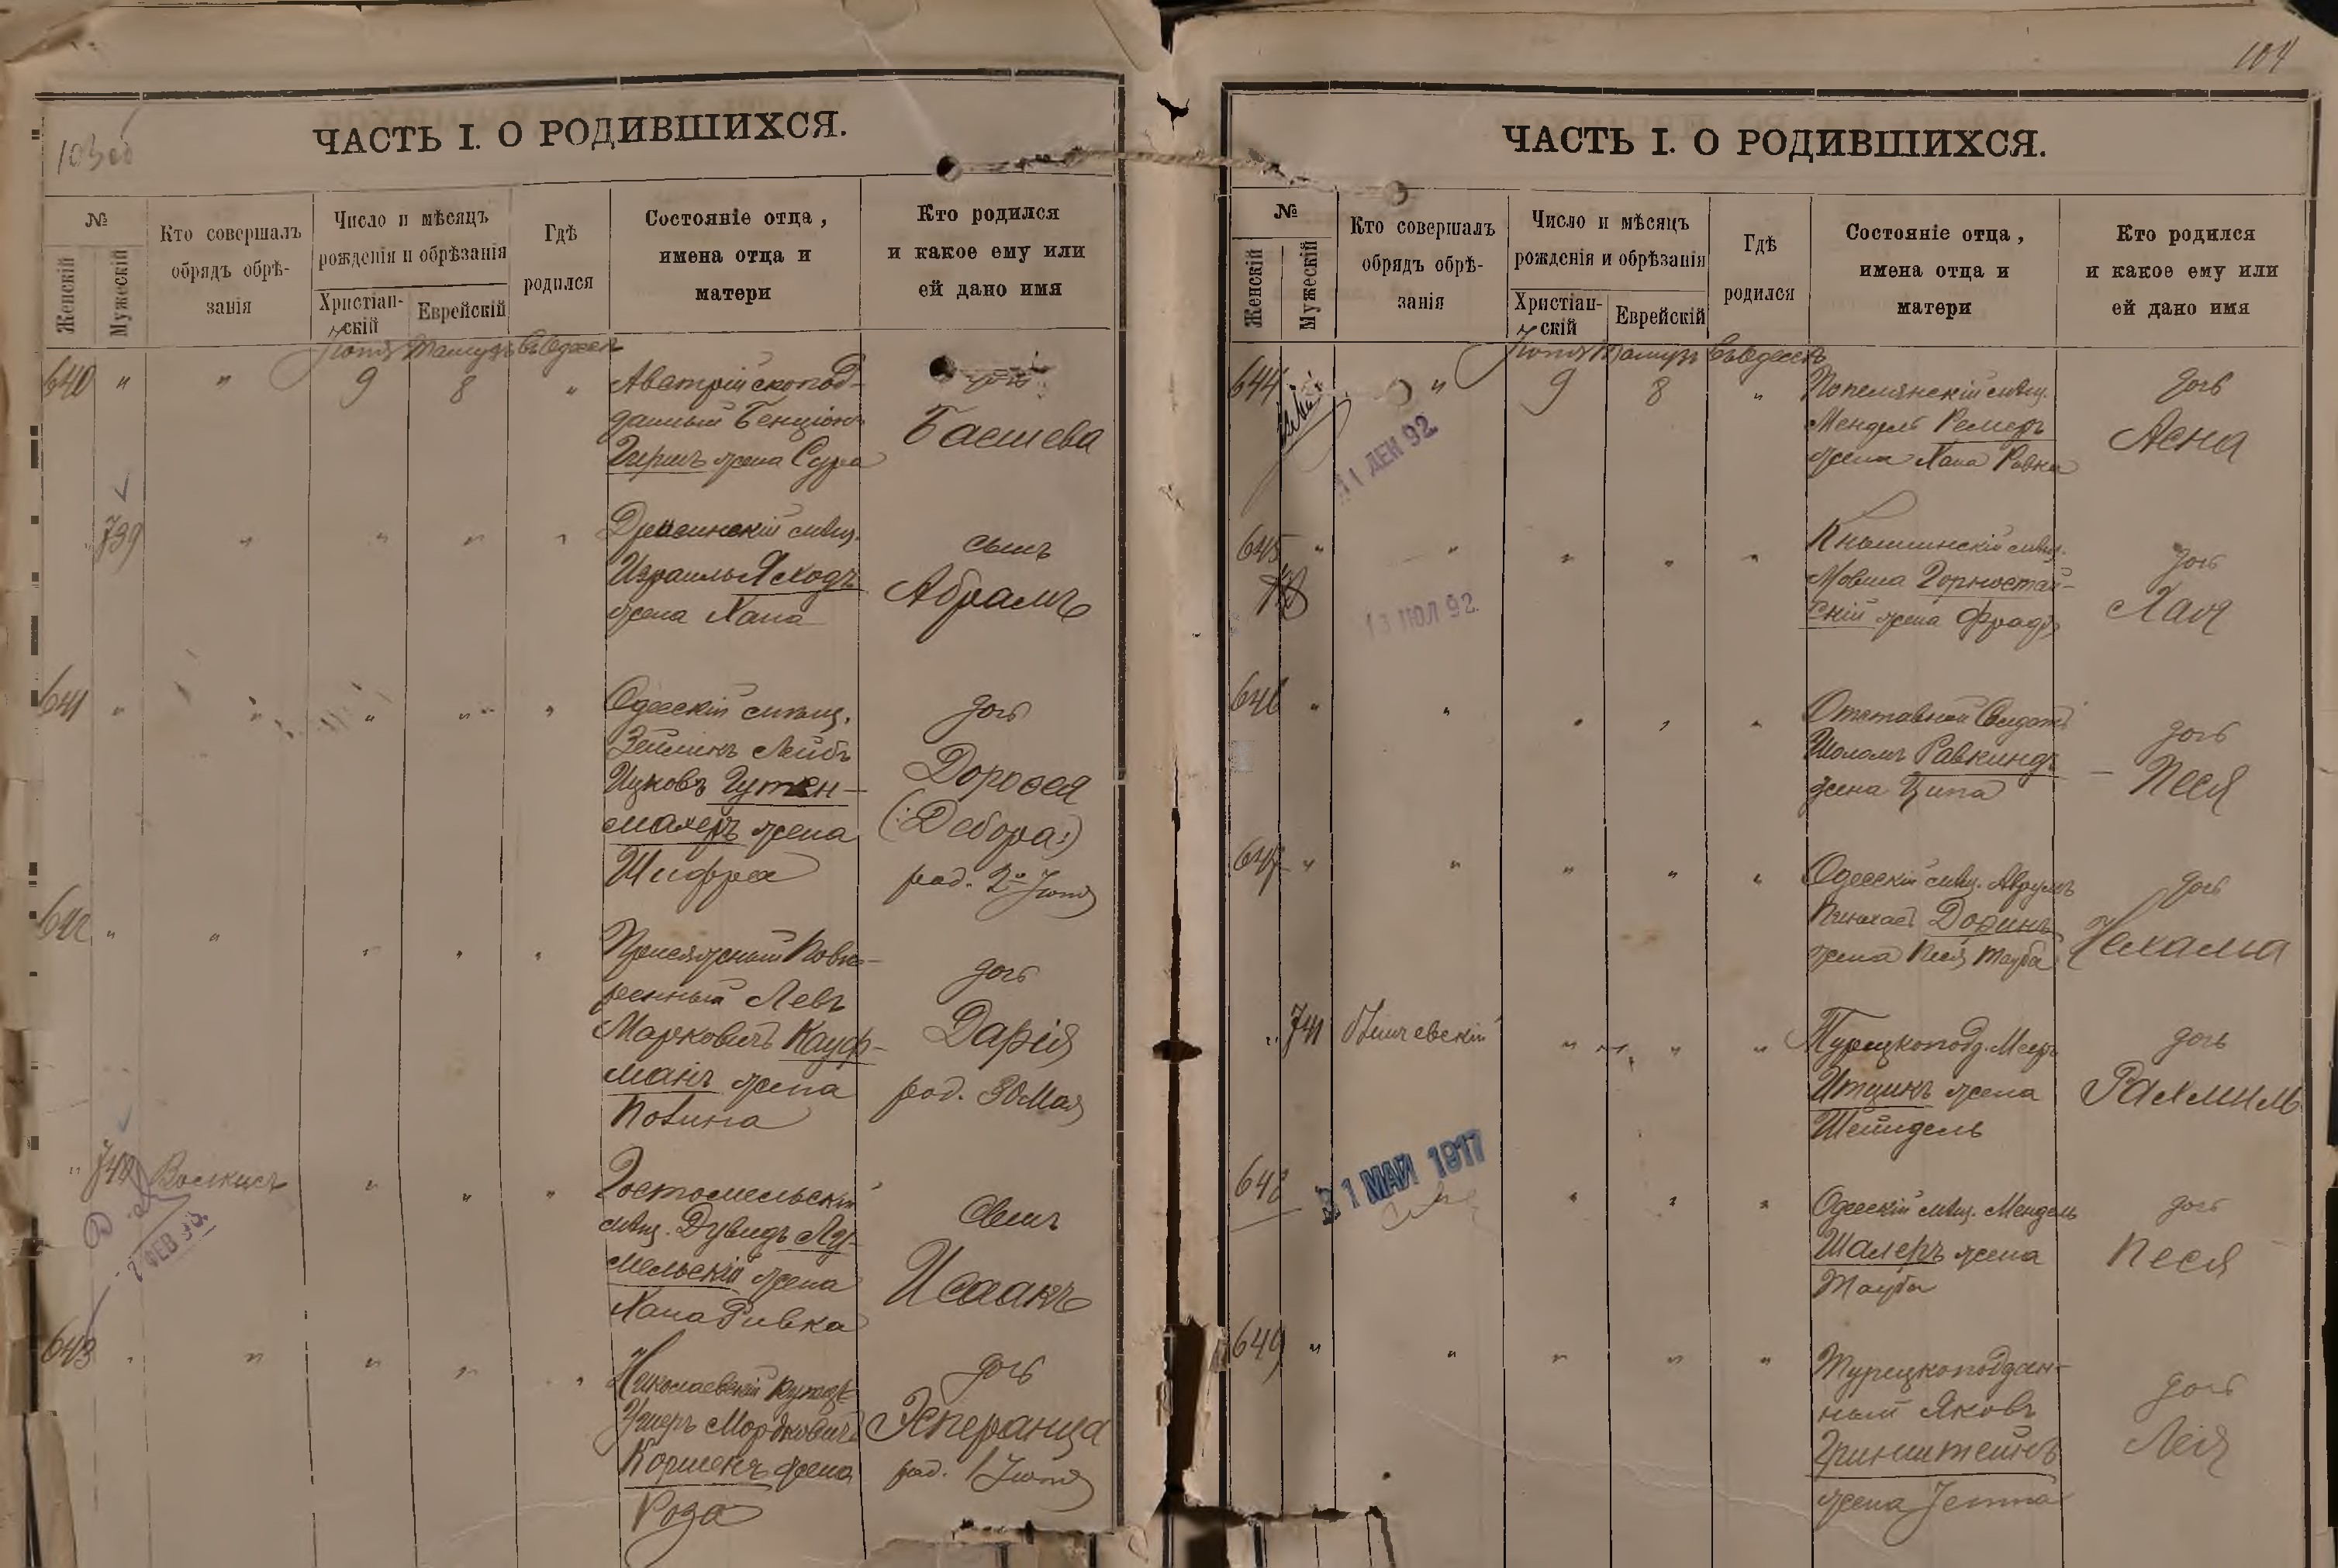 103 об
ЧАСТЬ I. О РОДИВШИХСЯ.
№
Женскій
Мужескій
Кто совершалъ
обрядъ обрѣ-
занія
Число и мѣсяцъ
рожденія и обрѣзанія
Христіан-
скій
Еврейскій
Гдѣ
родился
Состояніе отца,
имена отца и
матери
Кто родился
и какое ему или
ей дано имя
Іюня Тамузъ Въ Одессѣ
640 " " 9 8 "
Австрійскопод-
данный Бенціонъ
Гиршъ жена Сура
дочь
Басшева
739 " " " "
мѣщ.
Израиль Яскодъ
жена Хана
сынъ
Абрамъ
641 " " " " "
Одесскій мѣщ.
Зейликъ Лейбъ
Ицковъ Гутен-
махеръ жена
Шифра
дочь
Дороѳея
(:Дебора:)
род. 2го Іюня
642 " " " " "
Присяжный Повѣ-
ренный Левъ
Марковичъ Кауф-
манъ жена
Повина
дочь
Дарія
род. 30 Мая
" 740 " " "
7 ФЕВ 93.
Гостомельскій
мѣщ. Дувидъ
жена
Хана Ривка
Сынъ
Исаакъ
643 " " " " "
Николаевскій купецъ
Умеръ Мордковичъ
жена
Роза
дочь
Эсперанца
род. 1 Іюня
104
ЧАСТЬ I. О РОДИВШИХСЯ.
№
Женскій
Мужескій
Кто совершалъ
обрядъ обрѣ-
занія
Число и мѣсяцъ
рожденія и обрѣзанія
Христіан-
скій
Еврейскій
Гдѣ
родился
Состояніе отца,
имена отца и
матери
Кто родился
и какое ему или
ей дано имя
Іюня Тамузъ Въ Одессѣ
644 " 9 8 "
11 ДЕК 92.
Попелянскій мѣщ.
Мендель Ремеръ
жена Хана Ривка
дочь
Асна
645 " " " " "
13 ІЮЛ 92.
Кнышинскій мѣщ.
Мовша Горностай-
скій жена Фрадя
дочь
Хая
646 " " " " "
Отставной Солдатъ
Шоломъ Равкиндъ
жена Ципа
дочь
Песя
647 " " " " "
Одесскій мѣщ. Аврумъ
Пинхасъ Доринъ
жена Песя Тауба
дочь
Нехама
" 741 " " "
Турецкопод. Мееръ
Ицикъ жена
Шейндель
дочь
Рахмиль
648 " " "
31 МАЙ 1917
Одесскій мѣщ. Мендель
Шалеръ жена
Тауба
дочь
Песя
649 " " " " "
Турецкоподдан-
ный Яковъ
Гринштейнъ
жена Іента
дочь
Лея